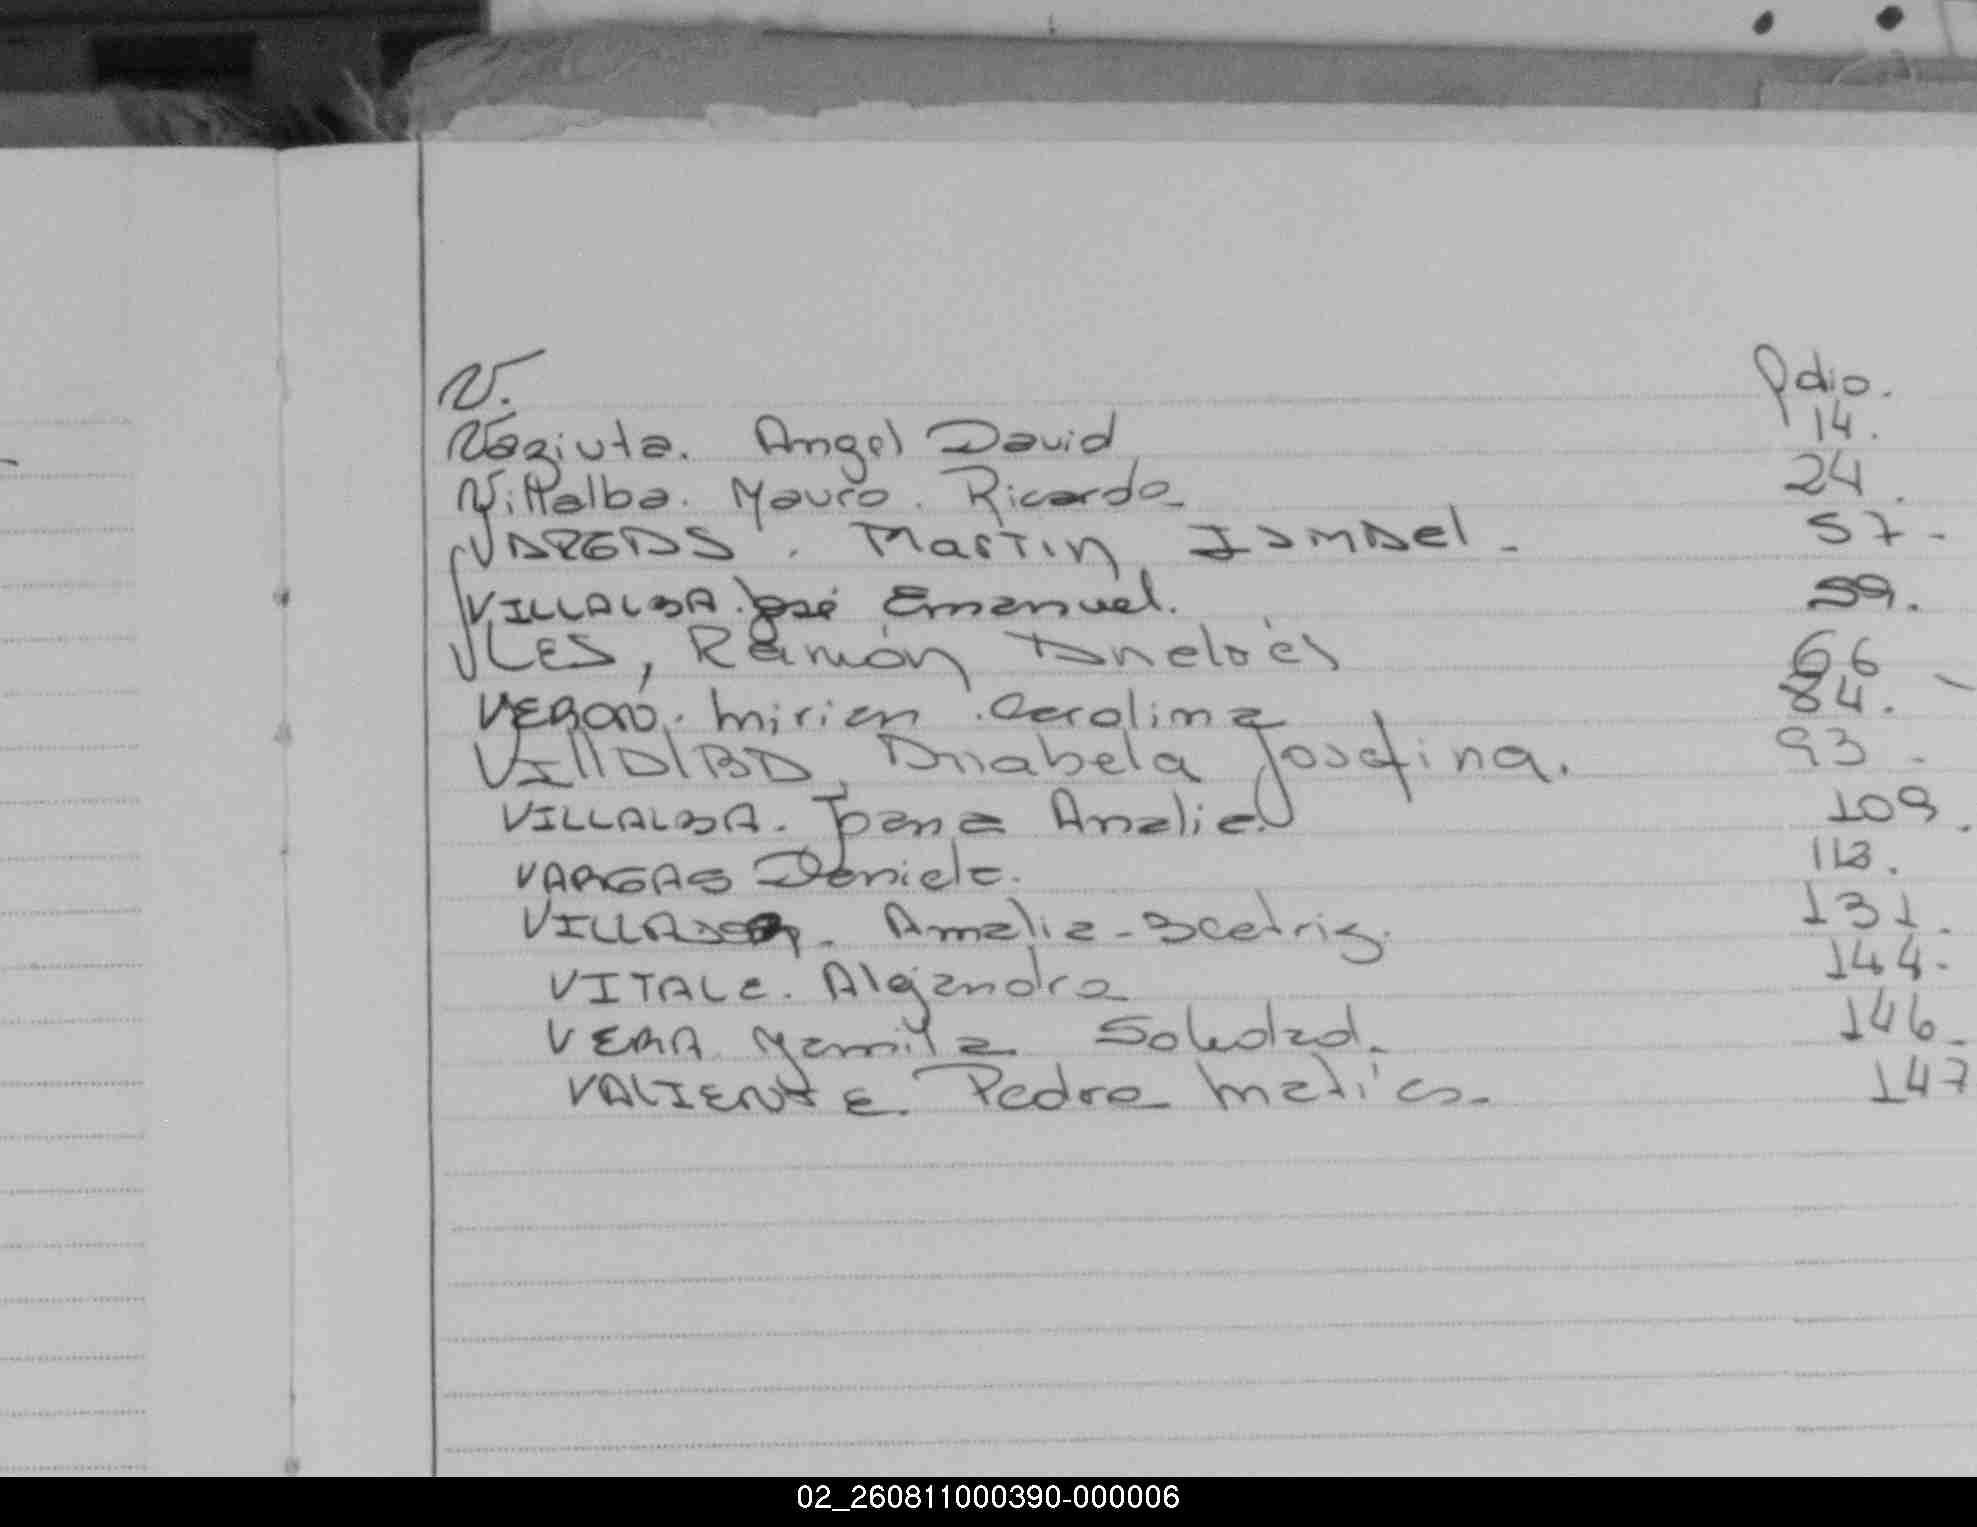 V. Fdio.
Vaziuta. Angel David 14.
Villalba. Mauro. Ricardo 24.
VAREAS. Martin ISMAel - 57-
VILLALBA. José Emanuel. 59.
VLES, Ramón 66
Mirian Carolina 84.
VIllAlBA, Anabela Josefina. 93.
VILLALBA. Joana Analia. 109.
VARGAS Daniela. 113.
Amalia-Beatriz. 131.
VITALE. Alejandro 144-
VERA Yamila Soledad. 146.
VALIENTE. Pedro Matías. 147
02_260811000390-000006